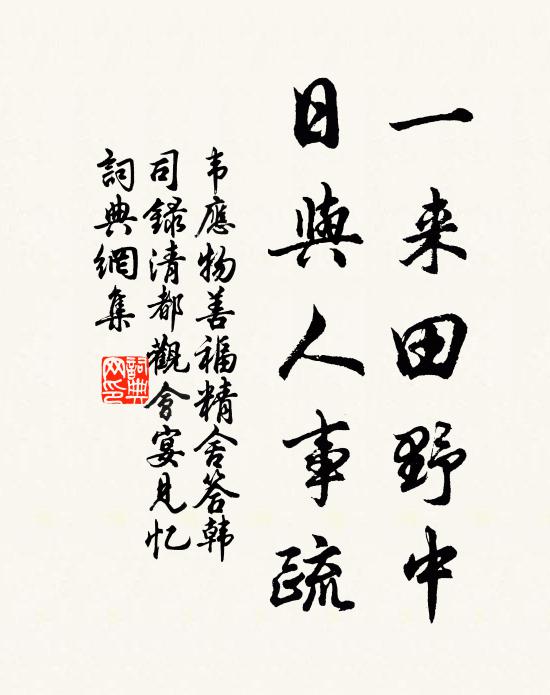 一来田野中
日與人事疏
韦應物善福精舍答韩
司録清都觀會宴見忆
詞典網集
詞典
网印